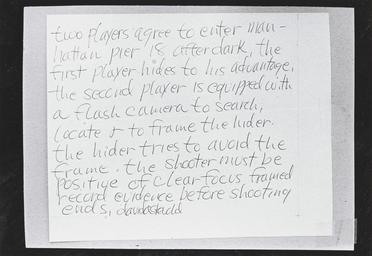 two players agree to enter Man-
hattan pier 18 after dark, the
first player hides to his advantage,
the second player is equipped with
a flash camera to search,
locate & to frame the hider.
the hider tries to avoid the
frame. the shooter must be
positive of clear focus framed
record evidence before shooting
ends,